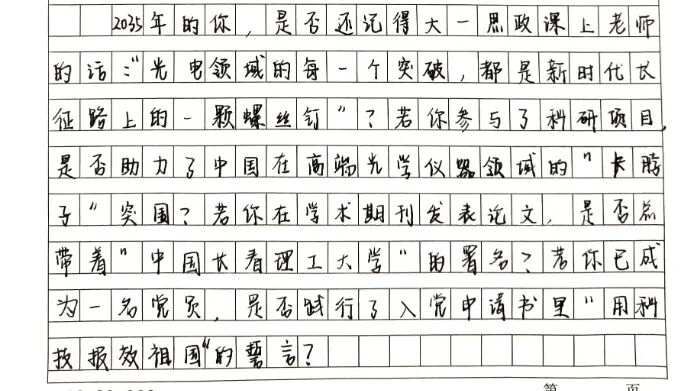 2035年的你，是否还记得大一思政课上老师
的话："光电领域的每一个突破，都是新时代长
征路上的一颗螺丝钉"？若你参与了科研项目，
是否助力了中国在高端光学仪器领域的"卡脖
子"突围？若你在学术期刊发表论文，是否总
带着"中国长春理工大学"的署名？若你已成
为一名党员，是否践行了入党申请书里"用科
技报效祖国"的誓言？
第 页